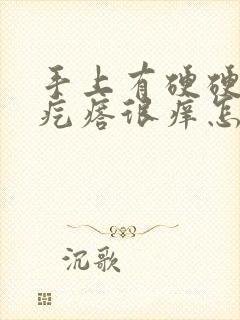 手上有硬硬
疙瘩很痒怎
沉歌